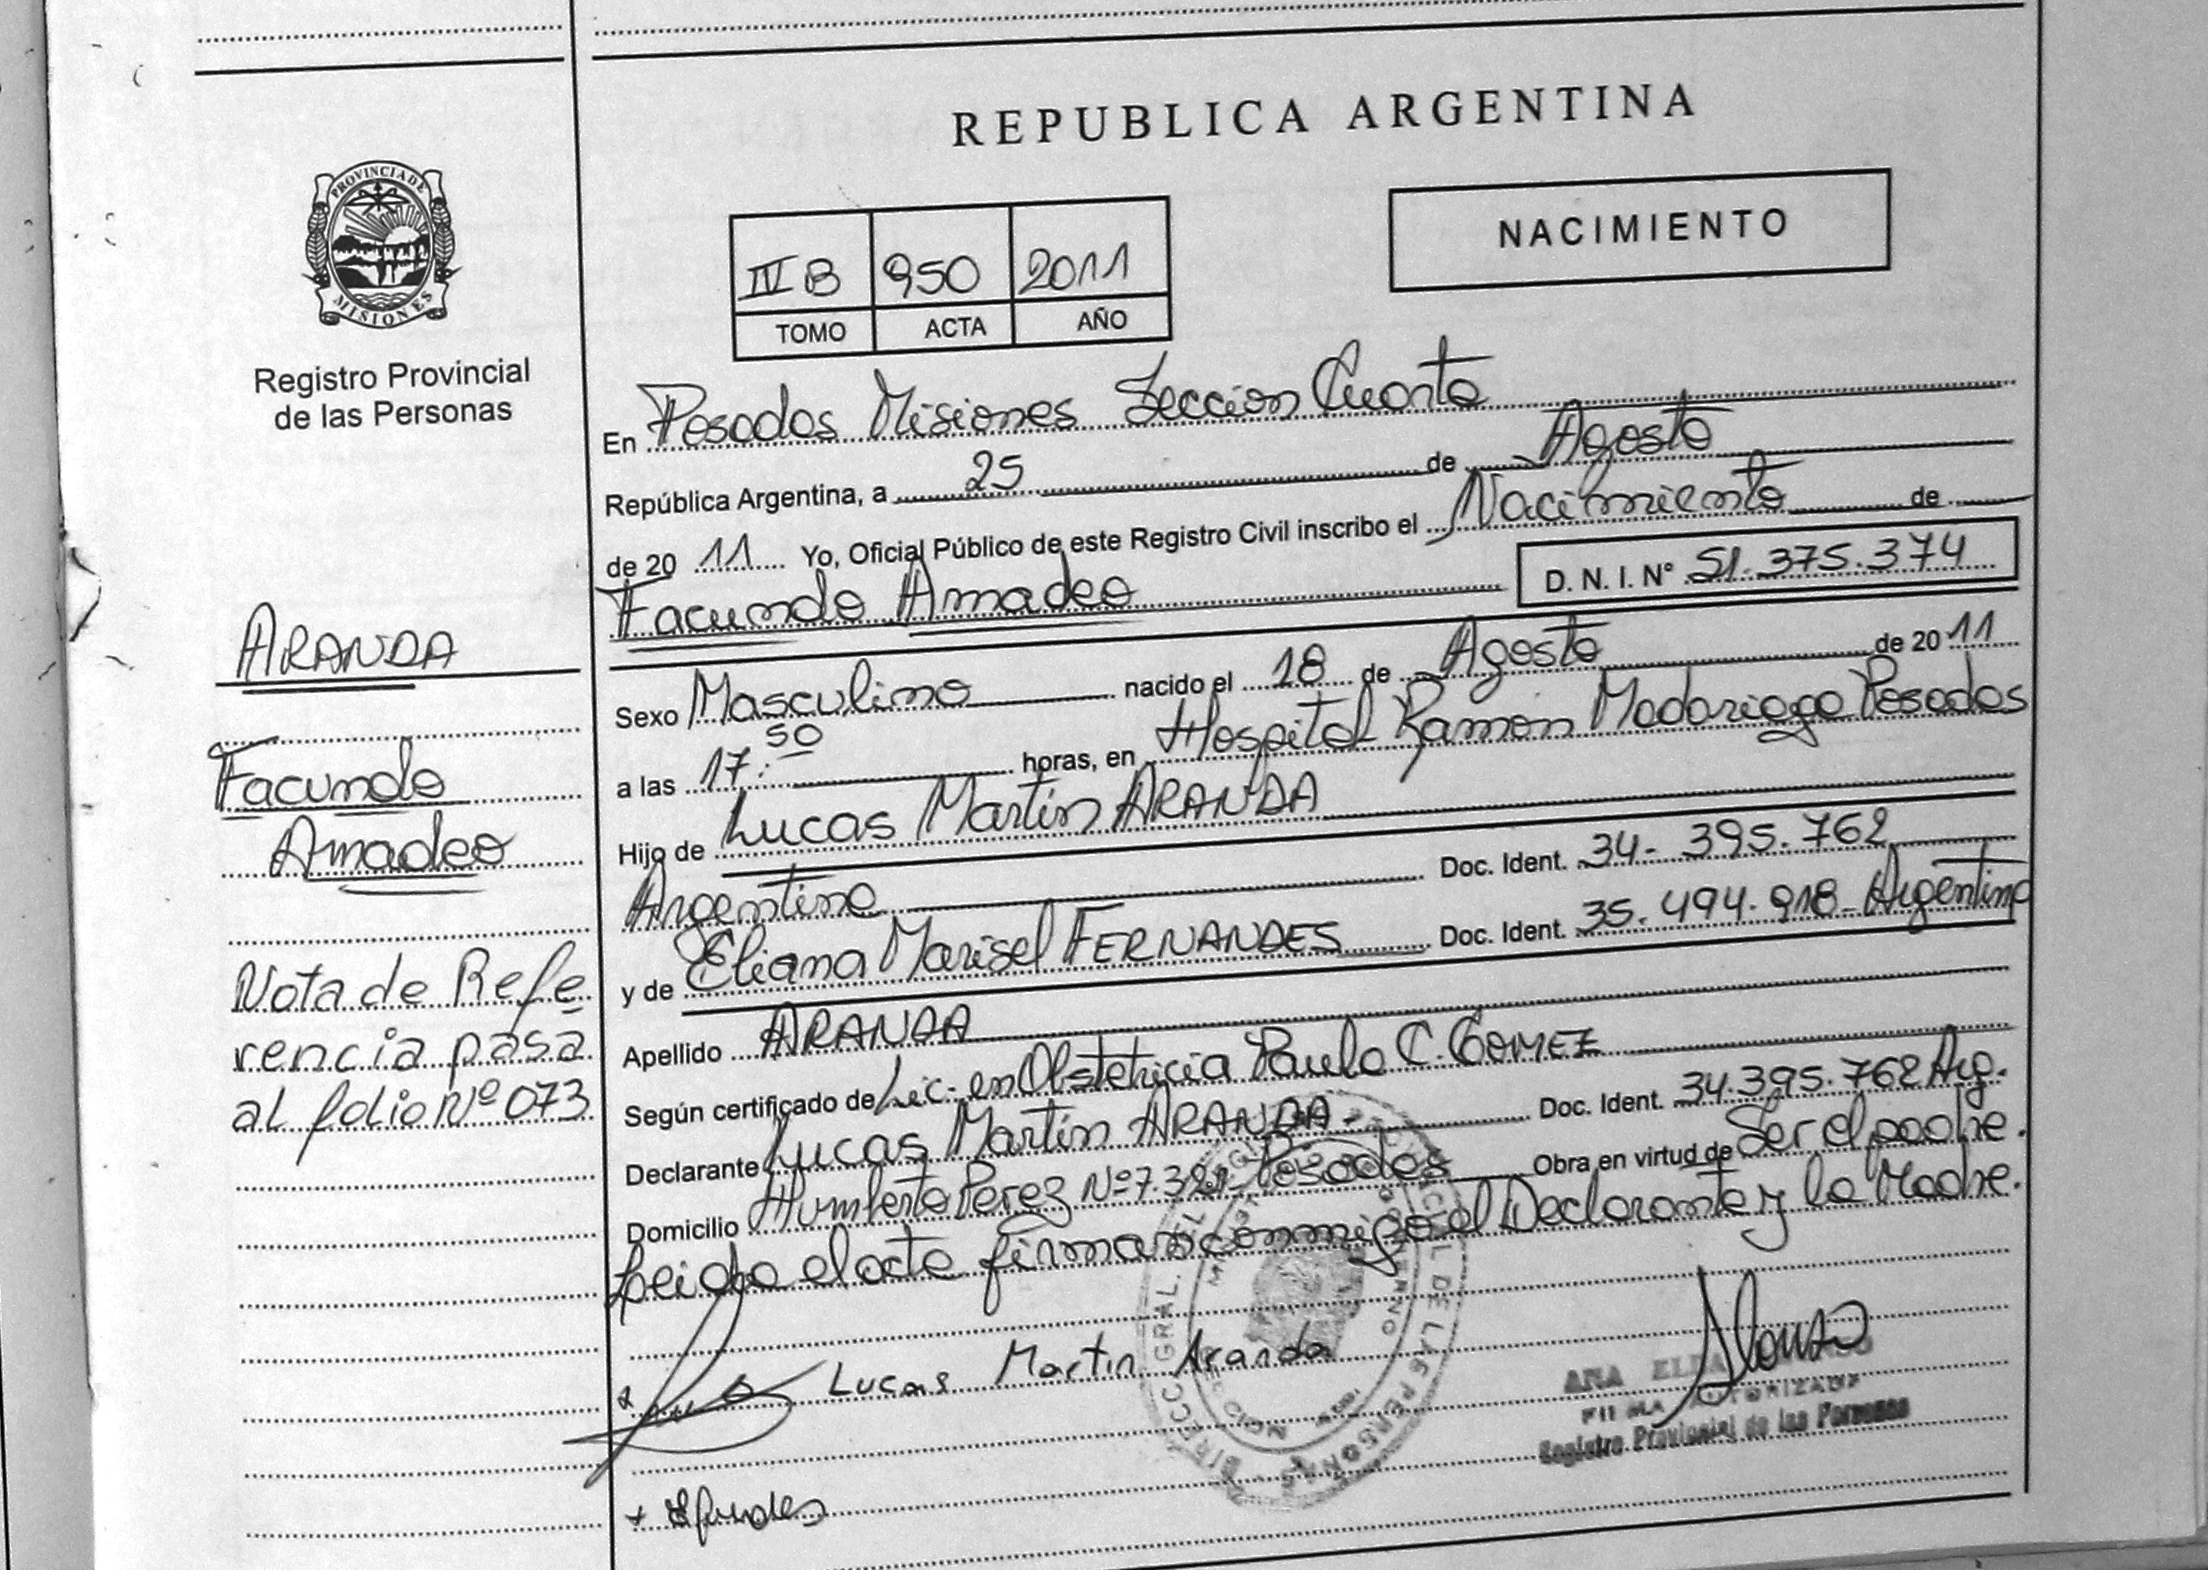 REPUBLICA ARGENTINA
NACIMIENTO
PROVINCIA DE
MISIONES
Registro Provincial
de las Personas
IV B 950 2011
TOMO ACTA AÑO
En Posadas Misiones Seccion Cuarta
República Argentina, a 25 de Agosto
de 20 11 Yo, Oficial Público de este Registro Civil inscribo el Nacimiento de
Facundo Amadeo D. N. I. N° 51.375.374
Sexo Masculino nacido el 18 de Agosto de 20 11
a las 17:50 horas, en Hospital Ramón Madariaga Posadas
Hijo de Lucas Martín ARANDA
Argentino Doc. Ident. 34-395.762
y de Eliana Marisel FERNANDES Doc. Ident. 35.494.918-Argentina
Apellido ARANDA
Según certificado de Lic. en Obstetricia Paula C. GOMEZ
Declarante Lucas Martín ARANDA- Doc. Ident. 34.395.762 Arg.
Domicilio Humberto Perez Nº 7.321. Posadas Obra en virtud de Ser el padre.
Leida el acta firman conmigo el Declarante y la Madre.
Lucas Martin Aranda
ANA ELBA
FIRMA AUTORIZADA
Registro Provincial de las Personas
ARANDA
Facundo
Amadeo
Nota de Refe
rencia pasa
al folio Nº 073